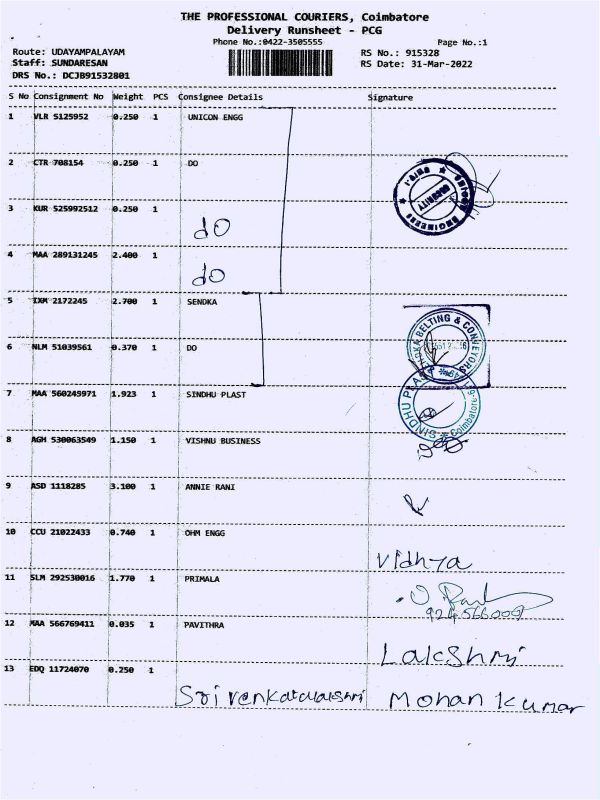 THE PROFESSIONAL COURIERS, Coimbatore
Delivery Runsheet - PCG
Phone No.:0422-3505555 Page No.:1
Route: UDAYAMPALAYAM RS No.: 915328
Staff: SUNDARESAN RS Date: 31-Mar-2022
DRS No.: DCJB91532801
S No Consignment No Weight PCS Consignee Details Signature
1 VLR S125952 0.250 1 UNICON ENGG
2 CTR 708154 0.250 1 DO
3 KUR 525992512 0.250 1 do
4 MAA 289131245 2.400 1 do
5 IXM 2172245 2.700 1 SENDKA
6 NLM 51039561 0.370 1 DO
BELTING & CONVEYORS
7 MAA 560245971 1.923 1 SINDHU PLAST
SINDHU PLAST Coimbatore
8 AGH 530063549 1.150 1 VISHNU BUSINESS
9 ASD 1118285 3.100 1 ANNIE RANI
10 CCU 21022433 0.740 1 OHM ENGG Vidhya
11 SLM 292530016 1.770 1 PRIMALA
12 MAA 566769411 0.035 1 PAVITHRA Lakshmi
13 EDQ 11724070 0.250 1 Sri venkatalakshmi Mohan Kumar